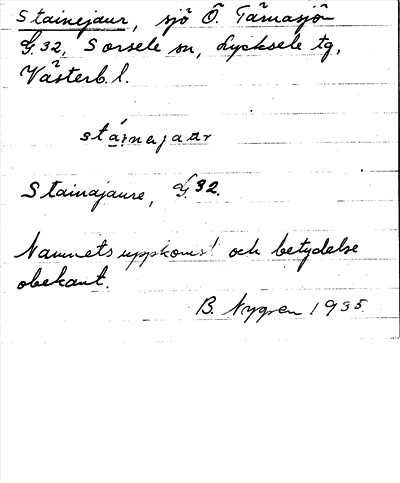 Stainejaur, sjö Ö. Tärnasjön
G. 32, Sorsele sn, Lycksele tg,
Västerb. l.
stáinejaur
Stainajaure, G. 32.
Namnets uppkomst och betydelse
obekant.
B. Nygren 1935.